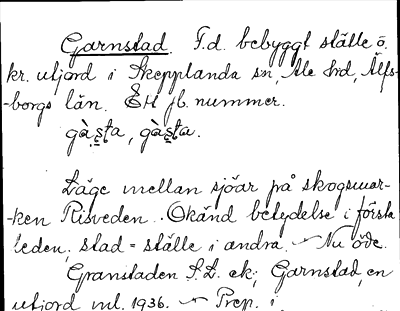 Garnstad. F.d. bebyggt ställe ö.
kr. utjord i Skepplanda sn, Ale hd, Älfs-
-borgs län. EH jb. nummer.
gàs̥ta, gàs̥ta.
Läge mellan sjöar på skogsmar-
-ken Risveden. Okänd betydelse i första
leden, stad = ställe i andra. – Nu öde.
Granstaden S.L. ek; Garnstad, en
utjord ml. 1936. – Prep. i